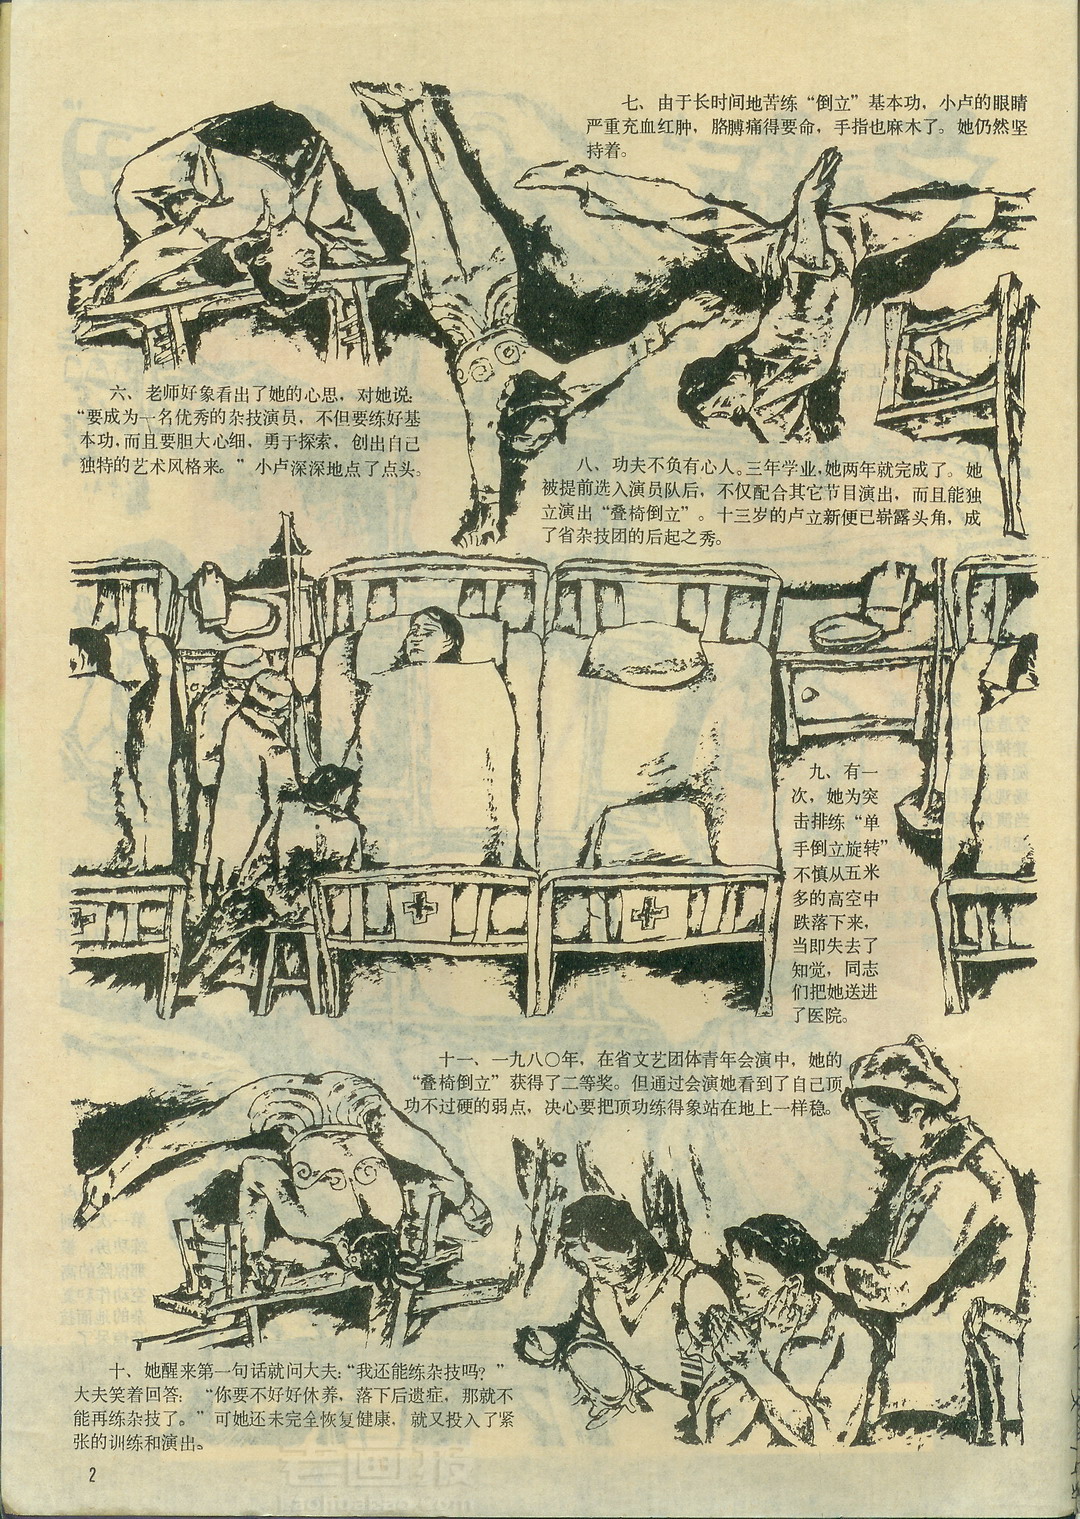 六、老师好象看出了她的心思，对她说：
“要成为一名优秀的杂技演员，不但要练好基
本功，而且要胆大心细，勇于探索，创出自己
独特的艺术风格来。”小卢深深地点了点头。
七、由于长时间地苦练“倒立”基本功，小卢的眼睛
严重充血红肿，胳膊痛得要命，手指也麻木了。她仍然坚
持着。
八、功夫不负有心人。三年学业，她两年就完成了。她
被提前选入演员队后，不仅配合其它节目演出，而且能独
立演出“叠椅倒立”。十三岁的卢立新便已崭露头角，成
了省杂技团的后起之秀。
九、有一
次，她为突
击排练“单
手倒立旋转”
不慎从五米
多的高空中
跌落下来，
当即失去了
知觉，同志
们把她送进
了医院。
十、她醒来第一句话就问大夫：“我还能练杂技吗？”
大夫笑着回答：“你要不好好休养，落下后遗症，那就不
能再练杂技了。”可她还未完全恢复健康，就又投入了紧
张的训练和演出。
十一、一九八〇年，在省文艺团体青年会演中，她的
“叠椅倒立”获得了二等奖。但通过会演她看到了自己顶
功不过硬的弱点，决心要把顶功练得象站在地上一样稳。
2